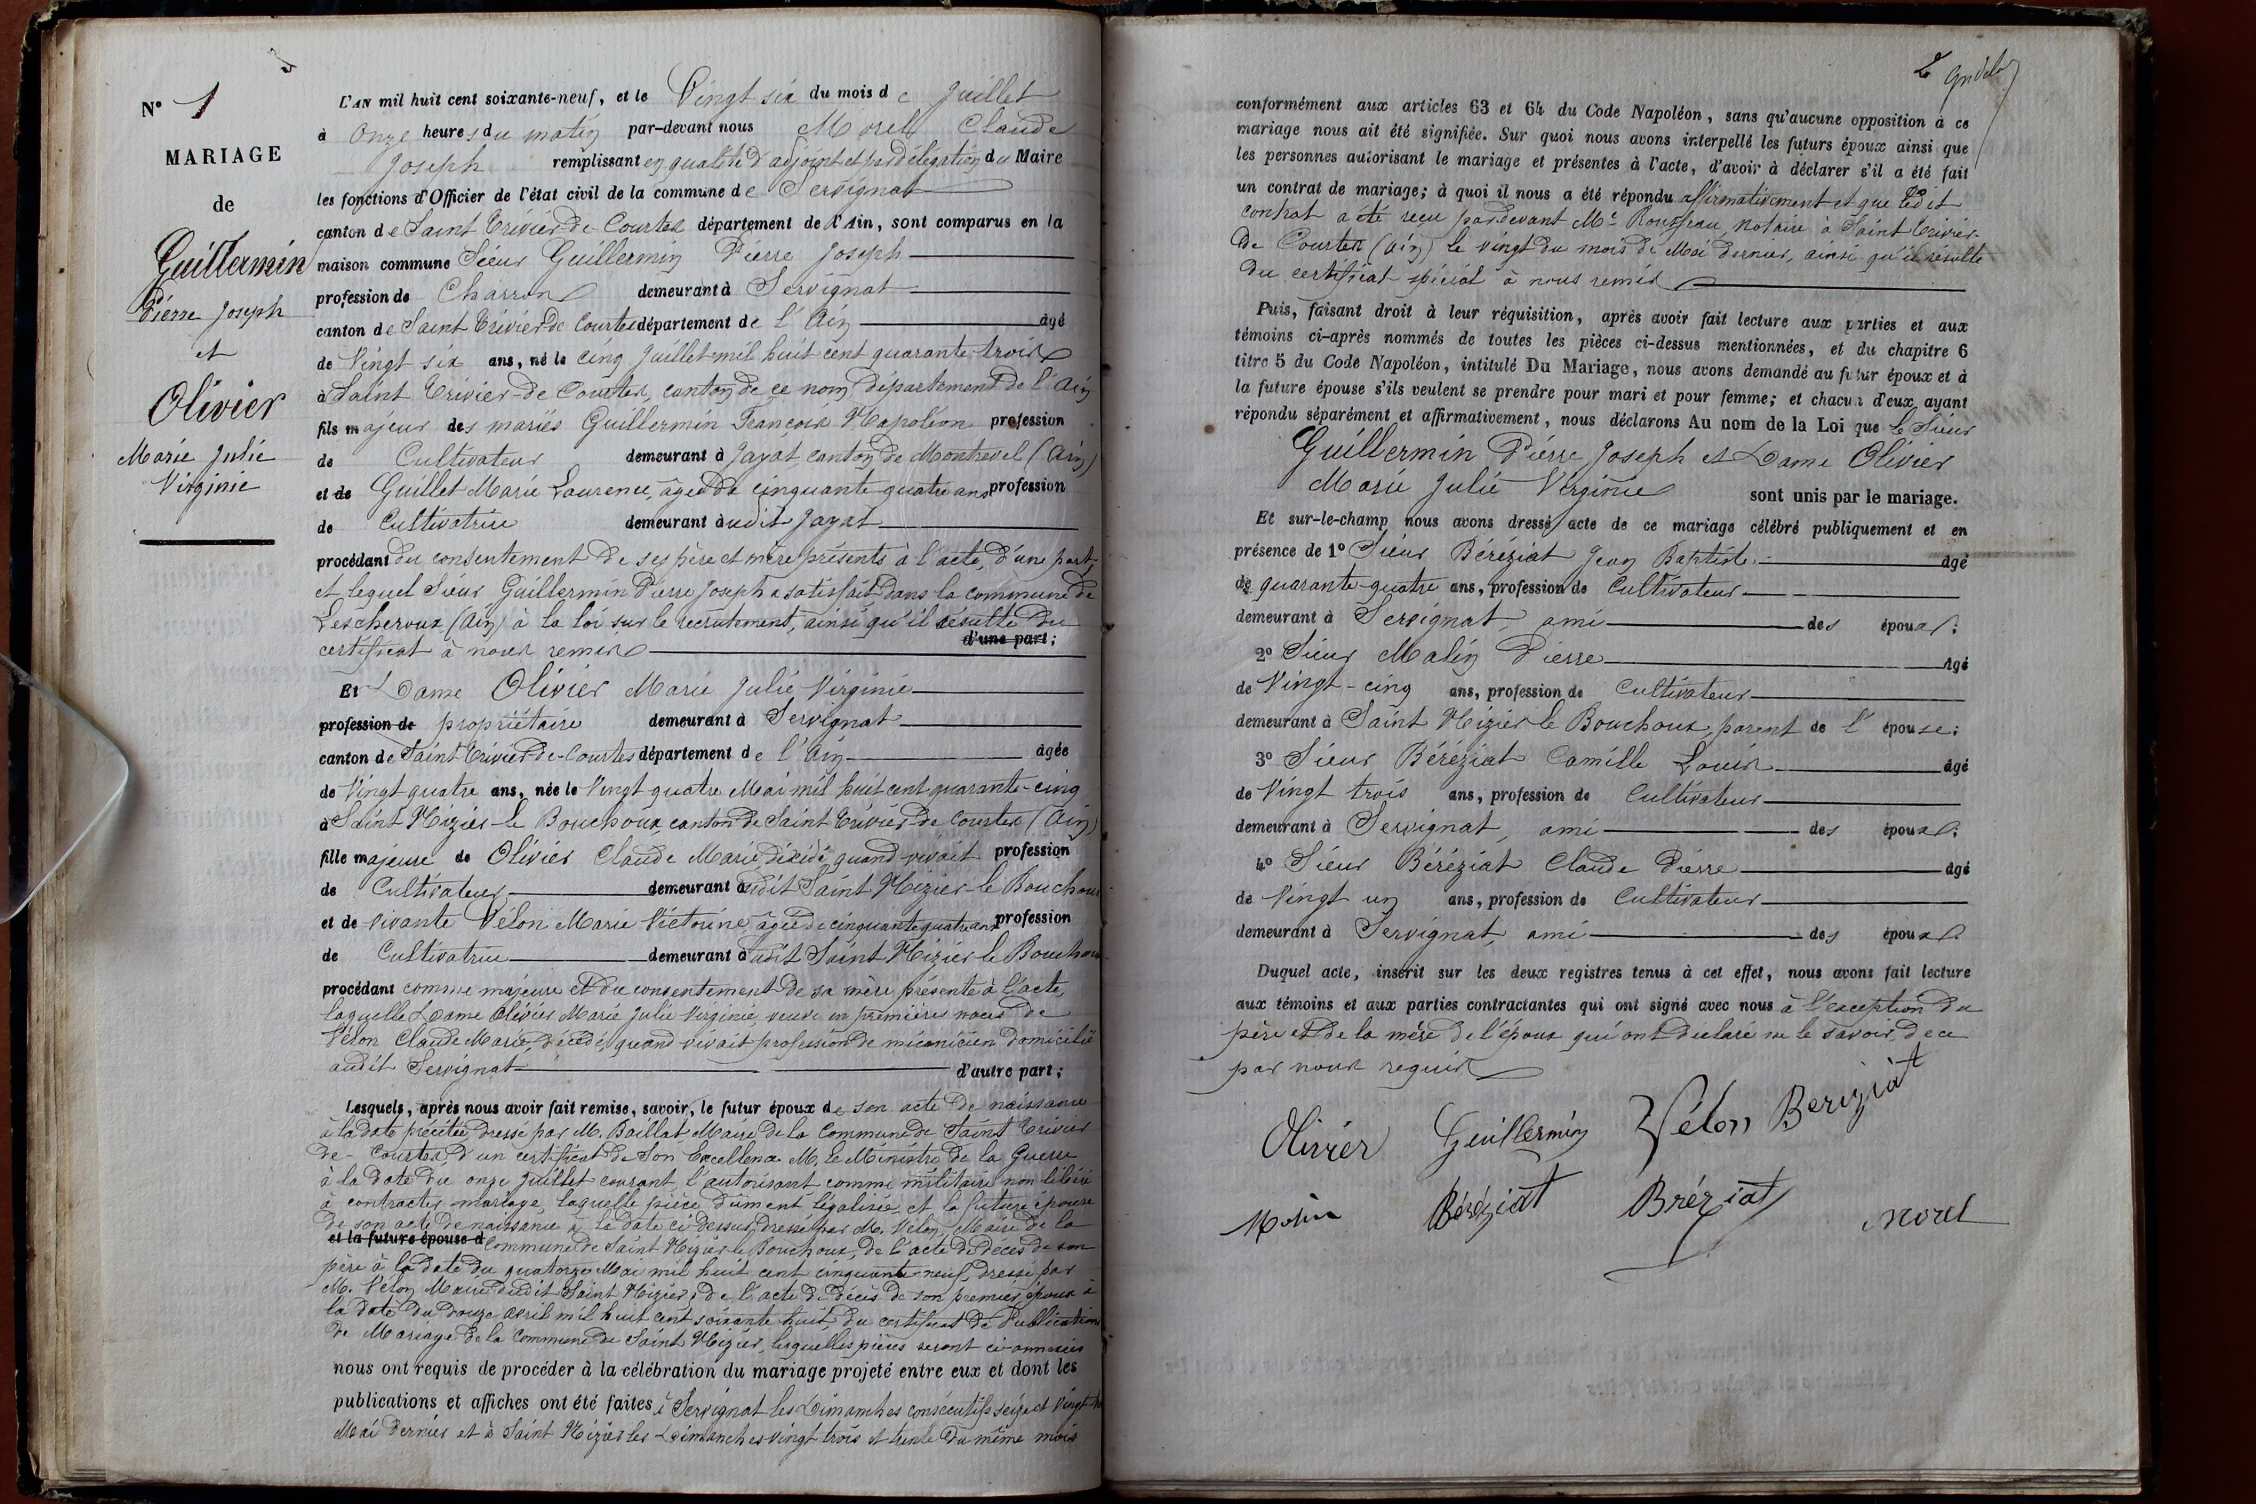 N° 1
MARIAGE
de
Guillermin
Pierre Joseph
et
Olivier
Marie Julie
Virginie
L'AN mil huit cent soixante-neuf, et le Vingt six du mois de Juillet
à Onze heures du matin par-devant nous Morel Claude
Joseph remplissant en qualité d'adjoint et par délégation du Maire
les fonctions d'Officier de l'état civil de la commune de Servignat
canton de Saint Trivier de Courtes département de l'Ain, sont comparus en la
maison commune Sieur Guillermin Pierre Joseph
profession de Charron demeurant à Servignat
canton de Saint Trivier de Courtes département de l'Ain âgé
de Vingt six ans, né le cinq Juillet mil huit cent quarante-trois
à Saint Trivier-de Courtes, canton de ce nom, département de l'Ain
fils majeur des mariés Guillermin François Napoléon profession
de Cultivateur demeurant à Jayat, canton de Montrevel (Ain)
et de Guillet Marie Laurence, âgée de cinquante-quatre ans profession
de Cultivatrice demeurant audit Jayat
procédant du consentement de ses père et mère présents à l'acte, d'une part;
et lequel Sieur Guillermin Pierre Joseph a satisfait dans la commune de
Lescheroux (Ain) à la loi sur le recrutement, ainsi qu'il résulte du
d'une part;
certificat à nous remis
Et Dame Olivier Marie Julie Virginie
profession de propriétaire demeurant à Servignat
canton de Saint Trivier-de-Courtes département de l'Ain âgée
de Vingt quatre ans, née le Vingt quatre Mai mil huit cent quarante-cinq
à Saint Nizier-le Bouchoux, canton de Saint Trivier-de Courtes (Ain)
fille majeure de Olivier Claude Marie, décédé, quand vivait profession
de Cultivateur demeurant audit Saint Nizier-le Bouchoux
et de vivante Vélon Marie Victorine, âgée de cinquante quatre ans profession
de Cultivatrice demeurant audit Saint Nizier le Bouchoux
procédant comme majeure et du consentement de sa mère, présente à l'acte,
laquelle Dame Olivier Marie Julie Virginie, veuve en premières noces de
Vélon Claude Marie, décédé, quand vivait profession de mécanicien domicilié
audit Servignat d'autre part;
Lesquels, après nous avoir fait remise, savoir, le futur époux de son acte de naissance
à la date précitée, dressé par M. Baillat Maire de la Commune de Saint Trivier
de-Courtes, d'un certificat de Son Excellence M. le Ministre de la Guerre
à la date du onze Juillet courant, l'autorisant comme militaire non libéré
à contracter mariage, laquelle pièce dûment légalisée, et la future épouse
de son acte de naissance à la date ci-dessus, dressé par M. Vélon, Maire de la
et la future épouse d Commune de Saint Nizier le Bouchoux, de l'acte de décès de son
père à la date du quatorze Mai mil huit cent cinquante-neuf, dressé par
M. Vélon Maire dudit Saint Nizier, de l'acte de décès de son premier époux à
la date du douze avril mil huit cent soixante-huit, du certificat de Publications
de Mariage de la Commune de Saint Nizier, lesquelles pièces seront ci-annexées
nous ont requis de procéder à la célébration du mariage projeté entre eux et dont les
publications et affiches ont été faites à Servignat les Dimanches consécutifs seize et Vingt
Mai dernier et à Saint Nizier les Dimanches vingt trois et trente du même mois
conformément aux articles 63 et 64 du Code Napoléon, sans qu'aucune opposition à ce
mariage nous ait été signifiée. Sur quoi nous avons interpellé les futurs époux ainsi que
les personnes autorisant le mariage et présentes à l'acte, d'avoir à déclarer s'il a été fait
un contrat de mariage; à quoi il nous a été répondu affirmativement et que ledit
contrat a été reçu pardevant Me Rousseau, notaire à Saint Trivier-
de Courtes (Ain) le vingt du mois de Mai dernier, ainsi qu'il résulte
du certificat spécial à nous remis
Puis, faisant droit à leur réquisition, après avoir fait lecture aux parties et aux
témoins ci-après nommés de toutes les pièces ci-dessus mentionnées, et du chapitre 6
titre 5 du Code Napoléon, intitulé Du Mariage, nous avons demandé au futur époux et à
la future épouse s'ils veulent se prendre pour mari et pour femme; et chacun d'eux ayant
répondu séparément et affirmativement, nous déclarons Au nom de la Loi que le Sieur
Guillermin Pierre Joseph et Dame Olivier
Marie Julie Virginie sont unis par le mariage.
Et sur-le-champ nous avons dressé acte de ce mariage célébré publiquement et en
présence de 1° Sieur Béréziat Jean Baptiste âgé
de quarante-quatre ans, profession de Cultivateur
demeurant à Servignat, ami des époux;
2° Sieur Malin Pierre âgé
de Vingt-cinq ans, profession de Cultivateur
demeurant à Saint Nizier le Bouchoux, parent de l'épouse;
3° Sieur Béréziat Camille Louis âgé
de Vingt trois ans, profession de Cultivateur
demeurant à Servignat, ami des époux;
4° Sieur Béréziat Claude Pierre âgé
de Vingt un ans, profession de Cultivateur
demeurant à Servignat, ami des époux
Duquel acte, inscrit sur les deux registres tenus à cet effet, nous avons fait lecture
aux témoins et aux parties contractantes qui ont signé avec nous à l'exception du
père et de la mère de l'époux qui ont déclaré ne le savoir, de ce
par nous requis
Olivier Guillermin Vélon Bereziat
Malin Béréziat Bréziat Morel